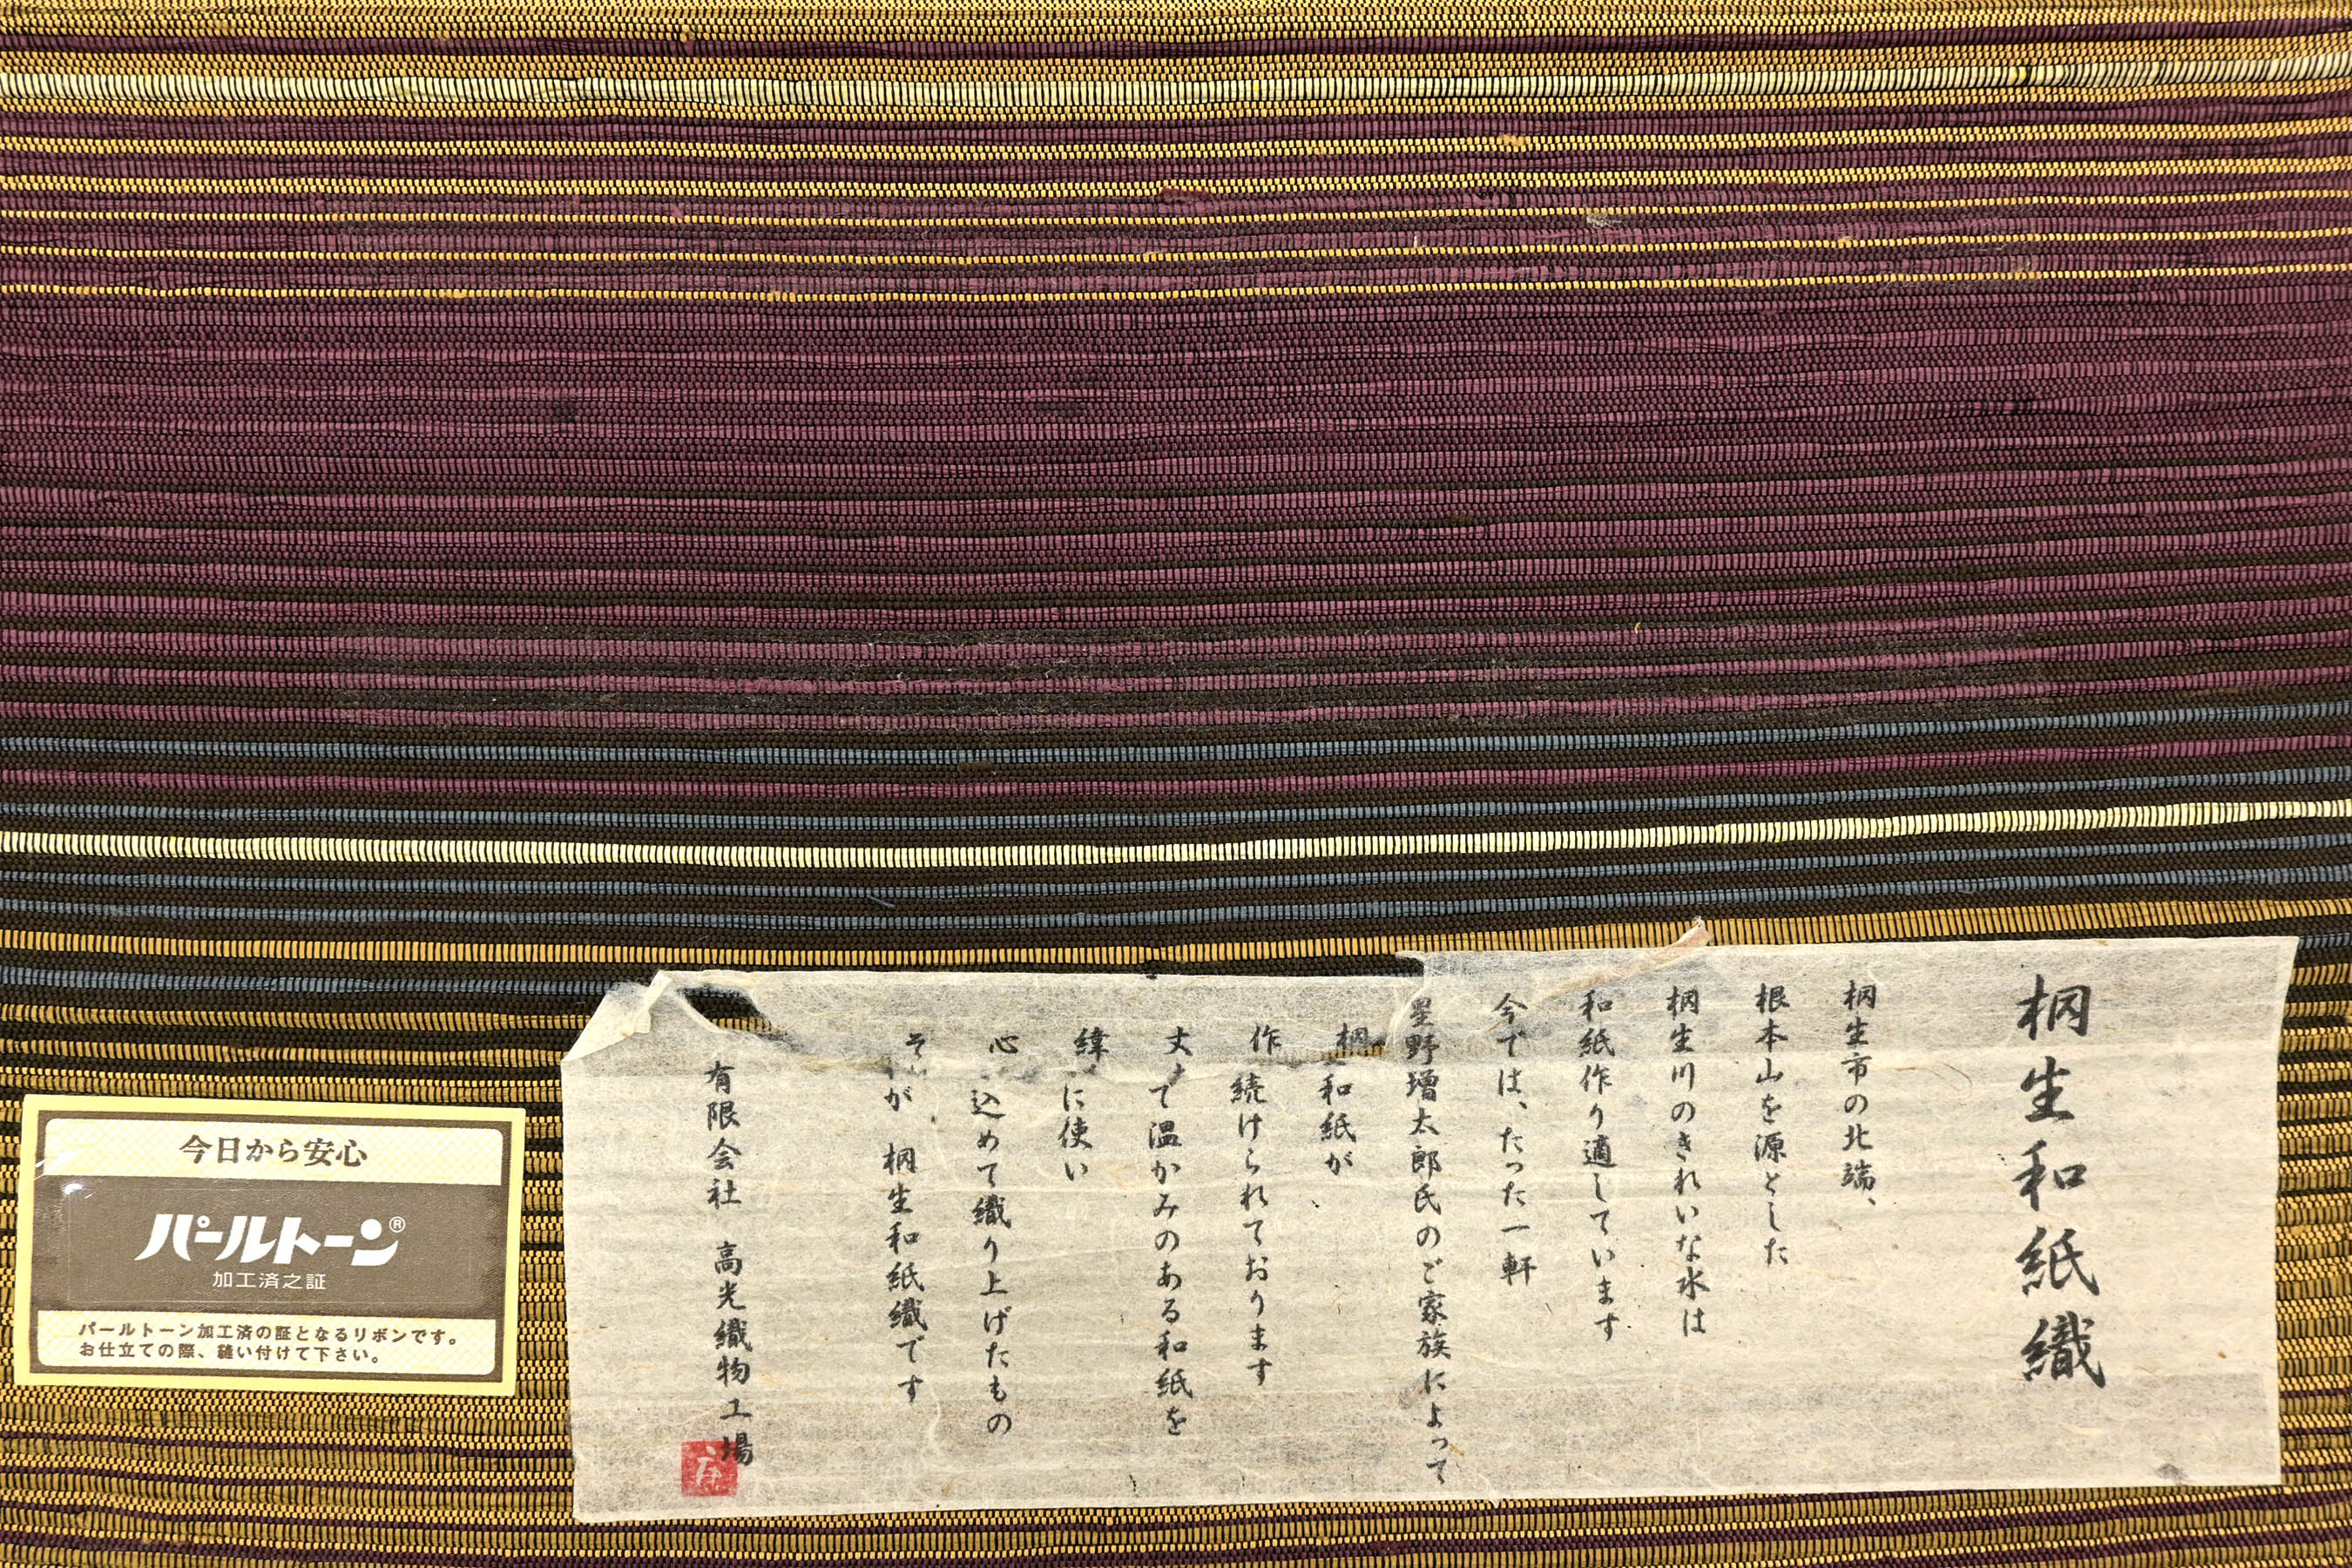 桐生和紙織
桐生市の北端、
根本山を源とした
桐生川のきれいな水は
和紙作り適しています
今では、たった一軒
星野増太郎氏のご家族によって
桐生和紙が
作り続けられております
丈 て温かみのある和紙を
緯 に使い
心 込めて織り上げたもの
そ が 桐生和紙織です
有限会社 高光織物工場
今日から安心
パールトーン®
加工済之証
パールトーン加工済の証となるリボンです。
お仕立ての際、縫い付けて下さい。